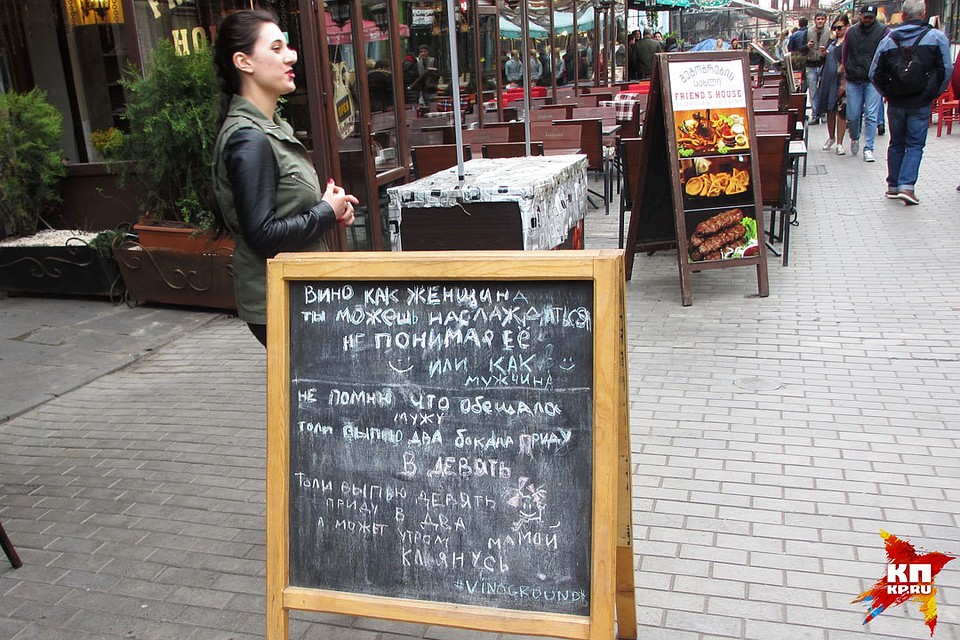 HO
მეგობრების
სახლი
FRIEND'S HOUSE
ВИНО КАК ЖЕНЩИНА
ТЫ МОЖЕШЬ НАСЛАЖДАТЬСЯ
НЕ ПОНИМАЯ ЕЁ
ИЛИ КАК ?
МУЖЧИНА
НЕ ПОМНЮ ЧТО ОБЕЩАЛА
МУЖУ
ТОЛИ ВЫПЬЮ ДВА БОКАЛА ПРИДУ
В ДЕВЯТЬ
ТОЛИ ВЫПЬЮ ДЕВЯТЬ
ПРИДУ В ДВА
А МОЖЕТ УТРОМ МАМОЙ
КЛЯНУСЬ
#VINOGROUND
КП
KP.RU